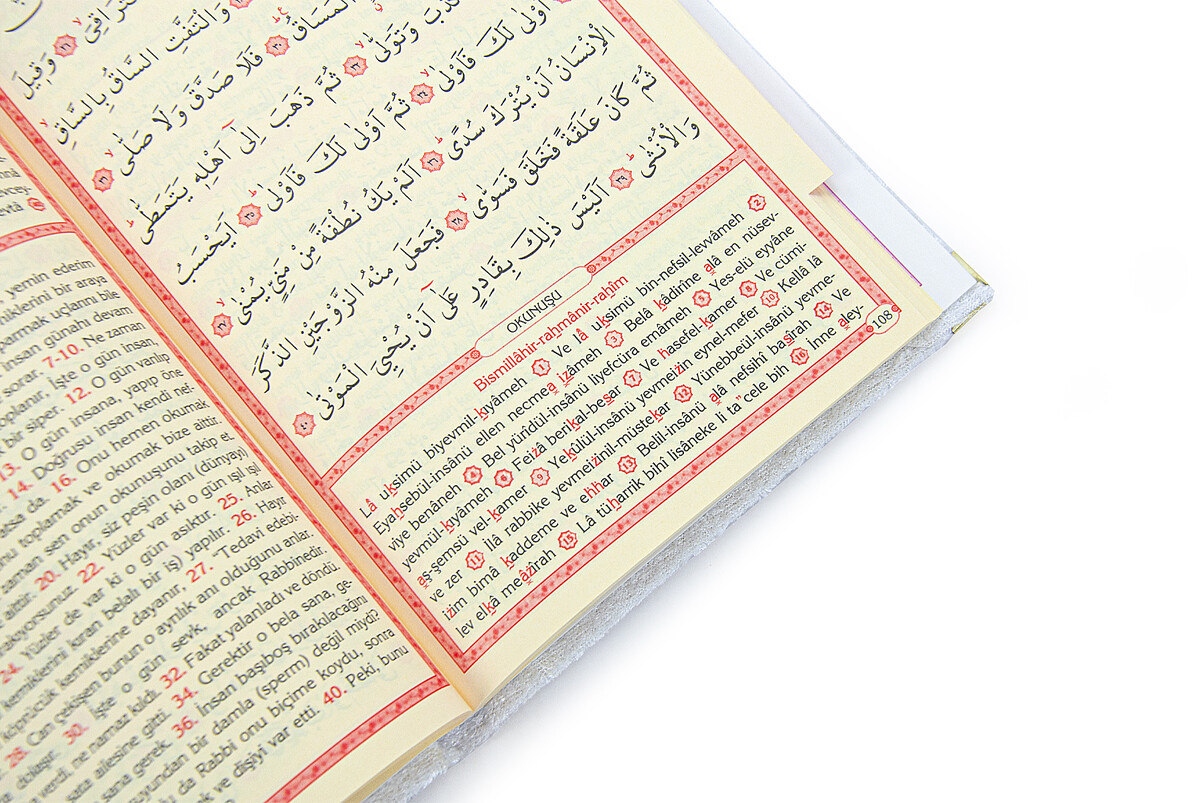 التَّرَاقِيَ ٢٦ وَق۪يلَ
وَالْتَفَّتِ السَّاقُ بِالسَّاقِ
الْمَسَاقُ ٣٠ فَلَا صَدَّقَ وَلَا صَلّٰى ٣١
وَتَوَلّٰى ٣٢ ثُمَّ ذَهَبَ اِلٰٓى اَهْلِه۪ يَتَمَطّٰى
اَوْلٰى لَكَ فَاَوْلٰى ٣٤ ثُمَّ اَوْلٰى لَكَ فَاَوْلٰى ٣٥ اَيَحْسَبُ
الْاِنْسَانُ اَنْ يُتْرَكَ سُدًى ٣٦ اَلَمْ يَكُ نُطْفَةً مِنْ مَنِيٍّ يُمْنٰى ٣٧
ثُمَّ كَانَ عَلَقَةً فَخَلَقَ فَسَوّٰى ٣٨ فَجَعَلَ مِنْهُ الزَّوْجَيْنِ الذَّكَرَ
وَالْاُنْثٰى ٣٩ اَلَيْسَ ذٰلِكَ بِقَادِرٍ عَلٰٓى اَنْ يُحْيِيَ الْمَوْتٰى ٤٠
OKUNUŞU
Bismillâhir-rahmânir-rahîm
Lâ uksimü biyevmil-kıyâmeh 1 Ve lâ uksimü bin-nefsil-levvâmeh 2
Eyahsebül-insânü ellen necmea ızâmeh 3 Belâ kâdirîne alâ en nüsev-
viye benâneh 4 Bel yürîdül-insânü liyefcüra emâmeh 5 Yes-elü eyyâne
yevmül-kıyâmeh 6 Feizâ berikal-besar 7 Ve hasefel-kamer 8 Ve cümi-
aş-şemsü vel-kamer 9 Yekûlül-insânü yevmeizin eynel-mefer 10 Kellâ lâ
ve zer 11 İlâ rabbike yevmeizinil-müstekar 12 Yünebbeül-insânü yevme-
izim bimâ kaddeme ve ehhar 13 Belil-insânü alâ nefsihî basîrah 14 Ve
lev elkâ meâzîrah 15 Lâ tüharrik bihî lisâneke li ta"cele bih 16 İnne aley-
108
yemin ederim
niklerini bir araya
parmak uçlarını bile
insan günahı devam
sorar. 7-10. Ne zaman
toplanır, İşte o gün insan,
bir siper. 12. O gün varılıp
13. O gün insana, yapıp öne
14. Doğrusu insan kendi nef-
da. 16. Onu hemen okumak
toplamak ve okumak bize aittir.
zaman sen onun okunuşunu takip et.
aittir. 20. Hayır, siz peşin olanı (dünyayı)
22. Yüzler var ki o gün ışıl ışıl
24. Yüzler de var ki o gün asıktır. 25. Anlar
kemiklerini kıran belalı bir iş) yapılır. 26. Hayır
köprücük kemiklerine dayanır, 27. "Tedavi edebi-
28. Can çekişen bunun o ayrılık anı olduğunu anlar.
dolaşır. 30. İşte o gün sevk, ancak Rabbinedir.
ne namaz kıldı. 32. Fakat yalanladı ve döndü.
ailesine gitti. 34. Gerektir o bela sana, ge-
sana gerek. 36. İnsan başıboş bırakılacağını
bir damla (sperm) değil miydi?
da Rabbi onu biçime koydu, sonra
ve dişiyi var etti. 40. Peki, bunu